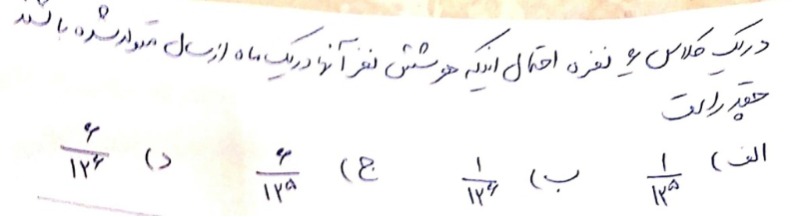 در یک کلاس ۶ نفره احتمال اینکه هر شش نفر آنها در یک ماه از سال متولد شده باشند
چقدر است
الف) ۱/۱۲^۵ ب) ۱/۱۲^۶ ج) ۶/۱۲^۵ د) ۶/۱۲^۶